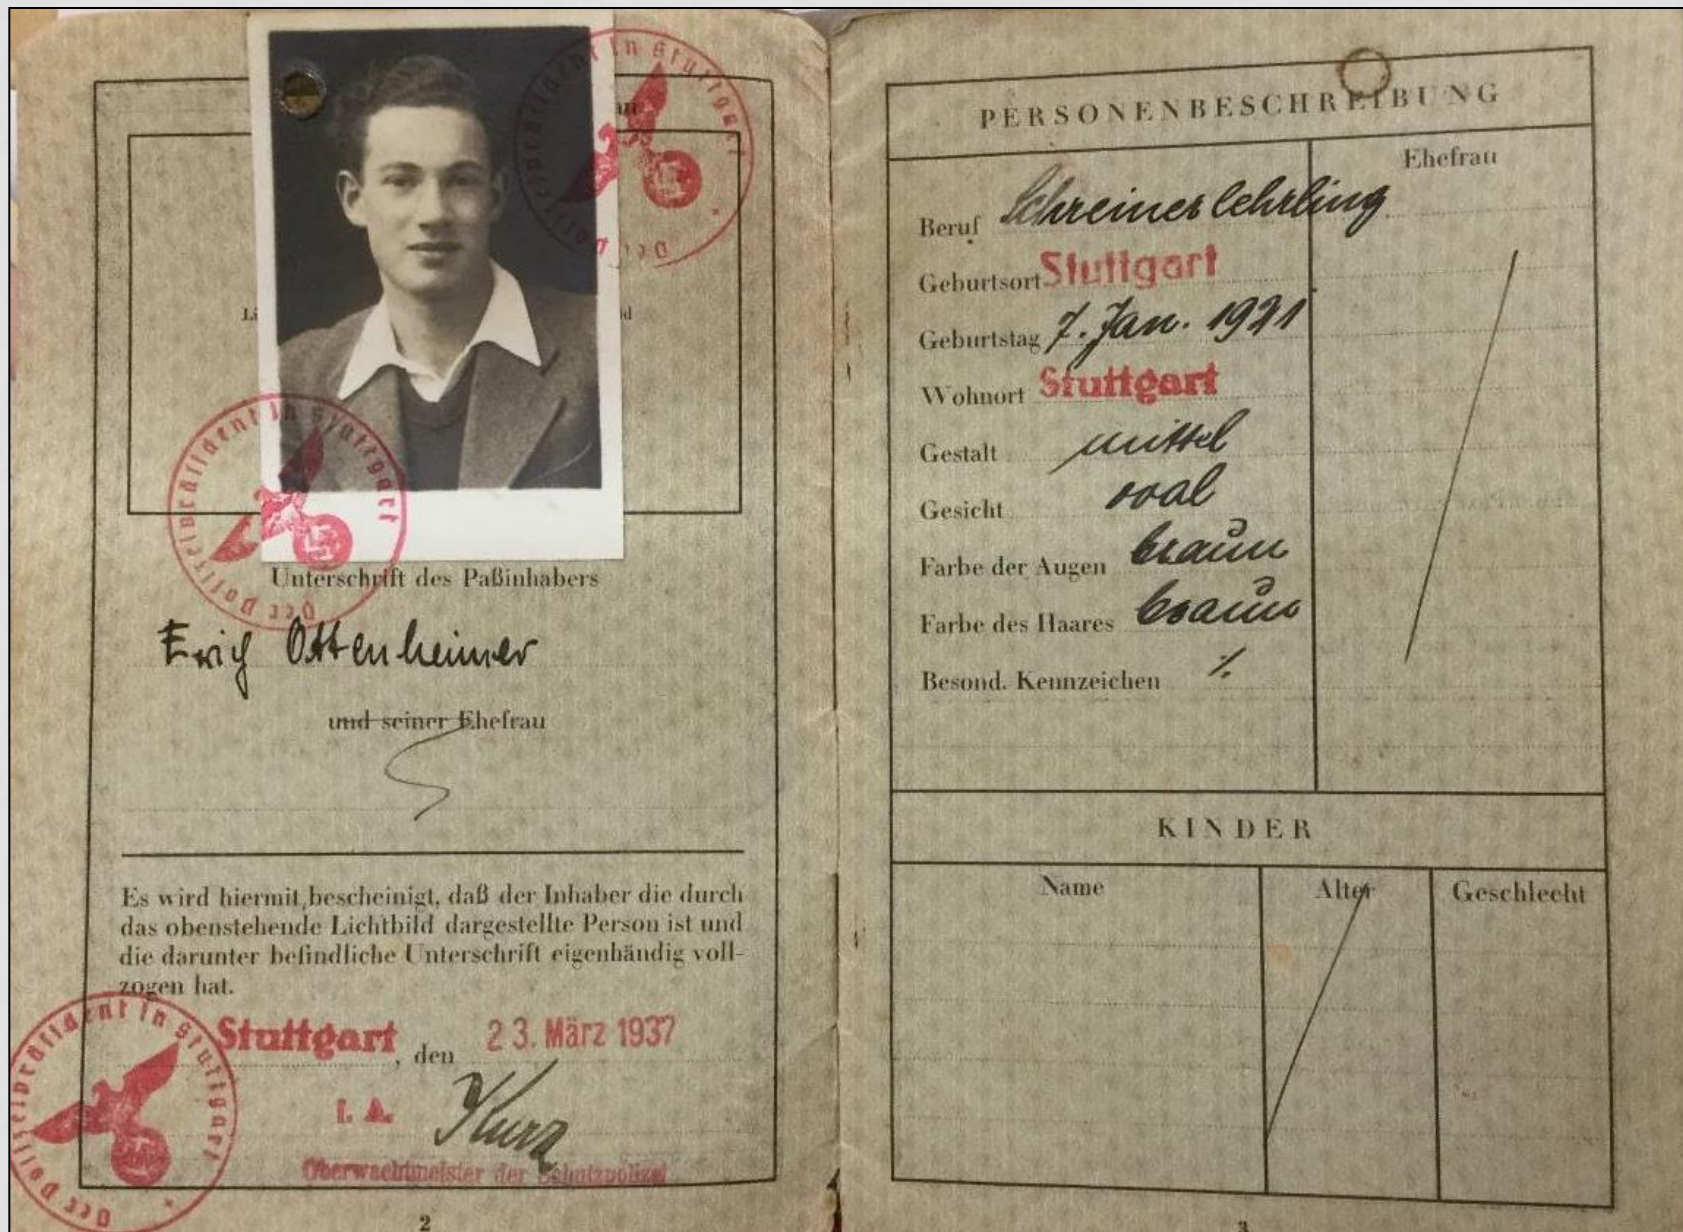 Der Polizeipräsident in Stuttgart
Der Polizeipräsident in Stuttgart
Unterschrift des Paßinhabers
Erich Ottenheimer
und seiner Ehefrau
Es wird hiermit bescheinigt, daß der Inhaber die durch
das obenstehende Lichtbild dargestellte Person ist und
die darunter befindliche Unterschrift eigenhändig voll-
zogen hat.
Stuttgart, den 23. März 1937
I. A. Kurz
Oberwachtmeister der Schutzpolizei
Der Polizeipräsident in Stuttgart
2
PERSONENBESCHREIBUNG
Ehefrau
Beruf Schreinerlehrling
Geburtsort Stuttgart
Geburtstag 7. Jan. 1921
Wohnort Stuttgart
Gestalt mittel
Gesicht oval
Farbe der Augen braun
Farbe des Haares braun
Besond. Kennzeichen ./.
KINDER
Name Alter Geschlecht
3